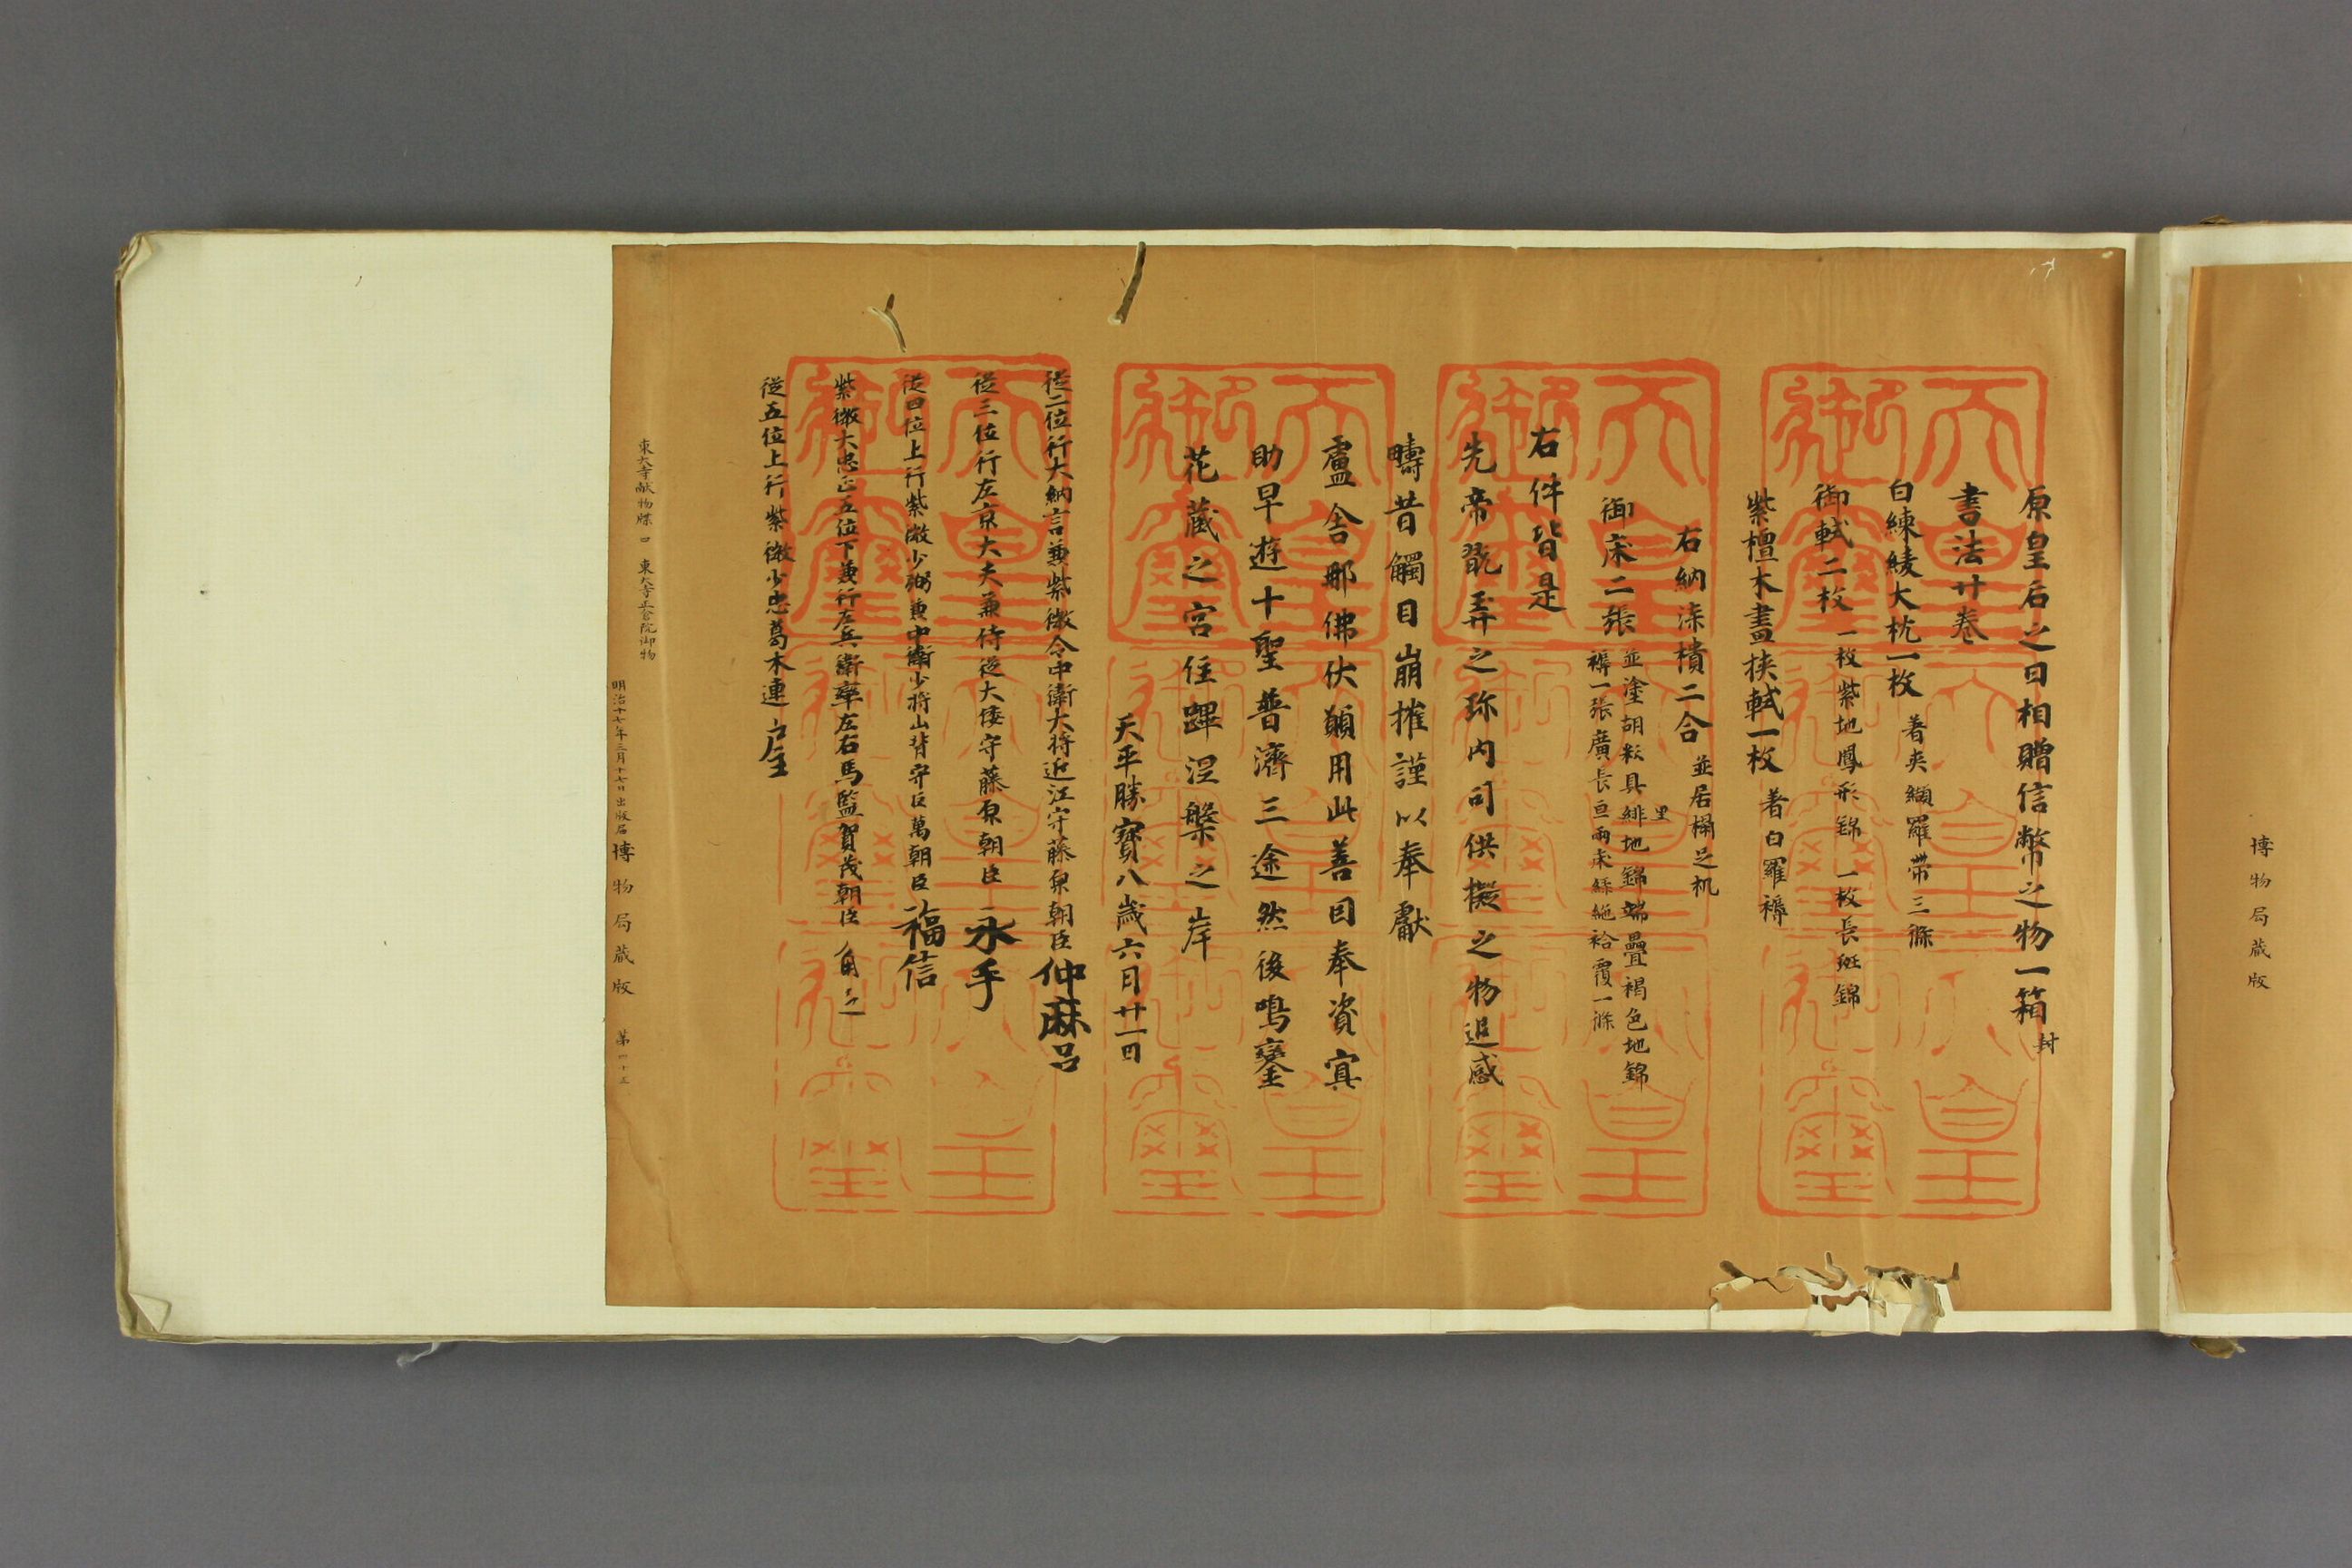 博物局蔵版
原皇后之日相贈信幣之物一箱 封
書法廿卷
白練綾大枕一枚 著夾纈羅帶三條
御軾二枚 一枚紫地鳳形錦 一枚長斑錦
紫檀木畫挾軾一枚 著白羅褥
右納漆樻二合 並居榻足机
御床二張 並塗胡粉具緋地錦端疊褐色地錦
褥一張廣長亘兩床綠絁袷覆一條
里
右件皆是
先帝翫弄之珎内司供擬之物追感
疇昔觸目崩摧謹以奉獻
盧舍那佛伏願用此善因奉資冥
助早遊十聖普濟三途然後鳴鑾
花蔵之宮住蹕涅槃之岸
天平勝寳八歳六月廿一日
從二位行大納言兼紫微令中衛大將近江守藤原朝臣仲麻呂
從三位行左京大夫兼侍從大倭守藤原朝臣永手
從四位上行紫微少弼兼中衛少將山背守巨萬朝臣福信
紫微大忠正五位下兼行左兵衛率左右馬監賀茂朝臣角足
從五位上行紫微少忠葛木連戸主
東大寺献物牒 東大寺正倉院御物
明治十七年三月十七日出版届 博物局蔵版 第四十五
天皇御璽
天皇御璽
天皇御璽
天皇御璽
天皇御璽
天皇御璽
天皇御璽
天皇御璽
天皇御璽
天皇御璽
天皇御璽
天皇御璽